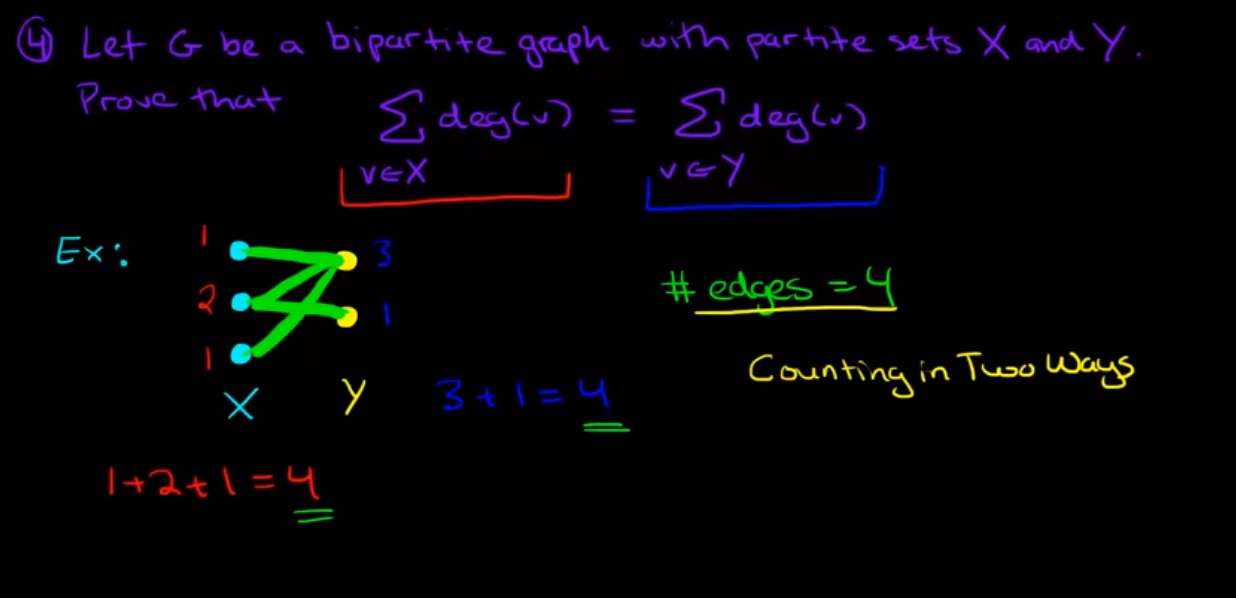 ④ Let G be a bipartite graph with partite sets X and Y.
Prove that ∑ deg(v) = ∑ deg(v)
v∈X v∈Y
Ex:
1 3
2 1
1
# edges = 4
Counting in Two Ways
X Y
3 + 1 = 4
1+2+1 = 4